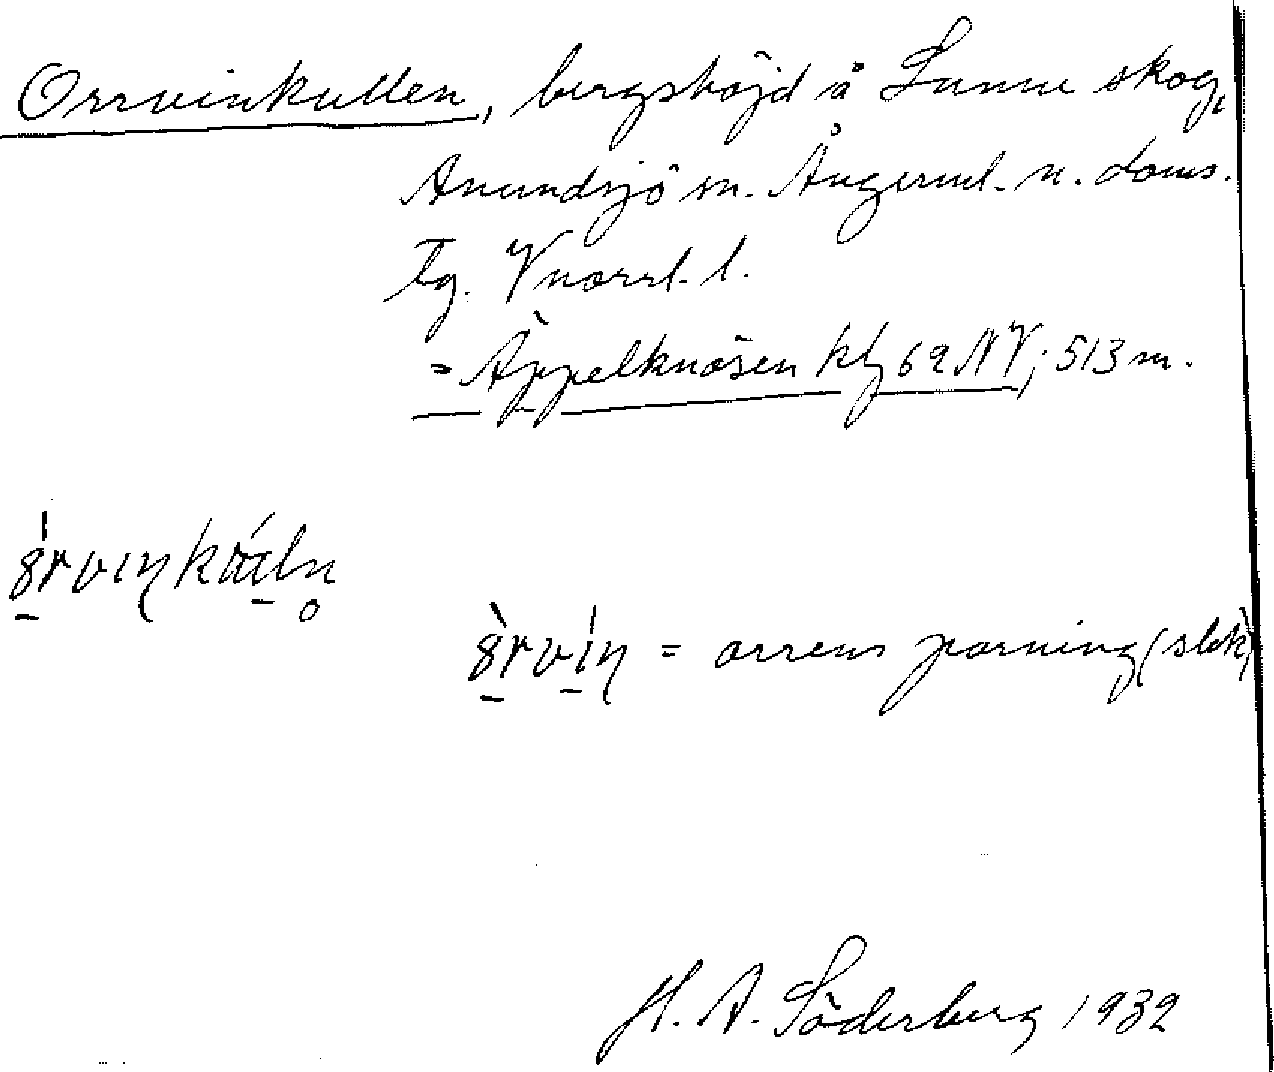 Orrveinkullen, bergshöjd å Lunne skog,
Anundsjö sn. Ångerml. n. doms.
Tg. Vnorrl. l.
= Äppelknösen kbl 62 NV; 513 m.
= orrens parning (slök)
H. A. Söderberg 1932